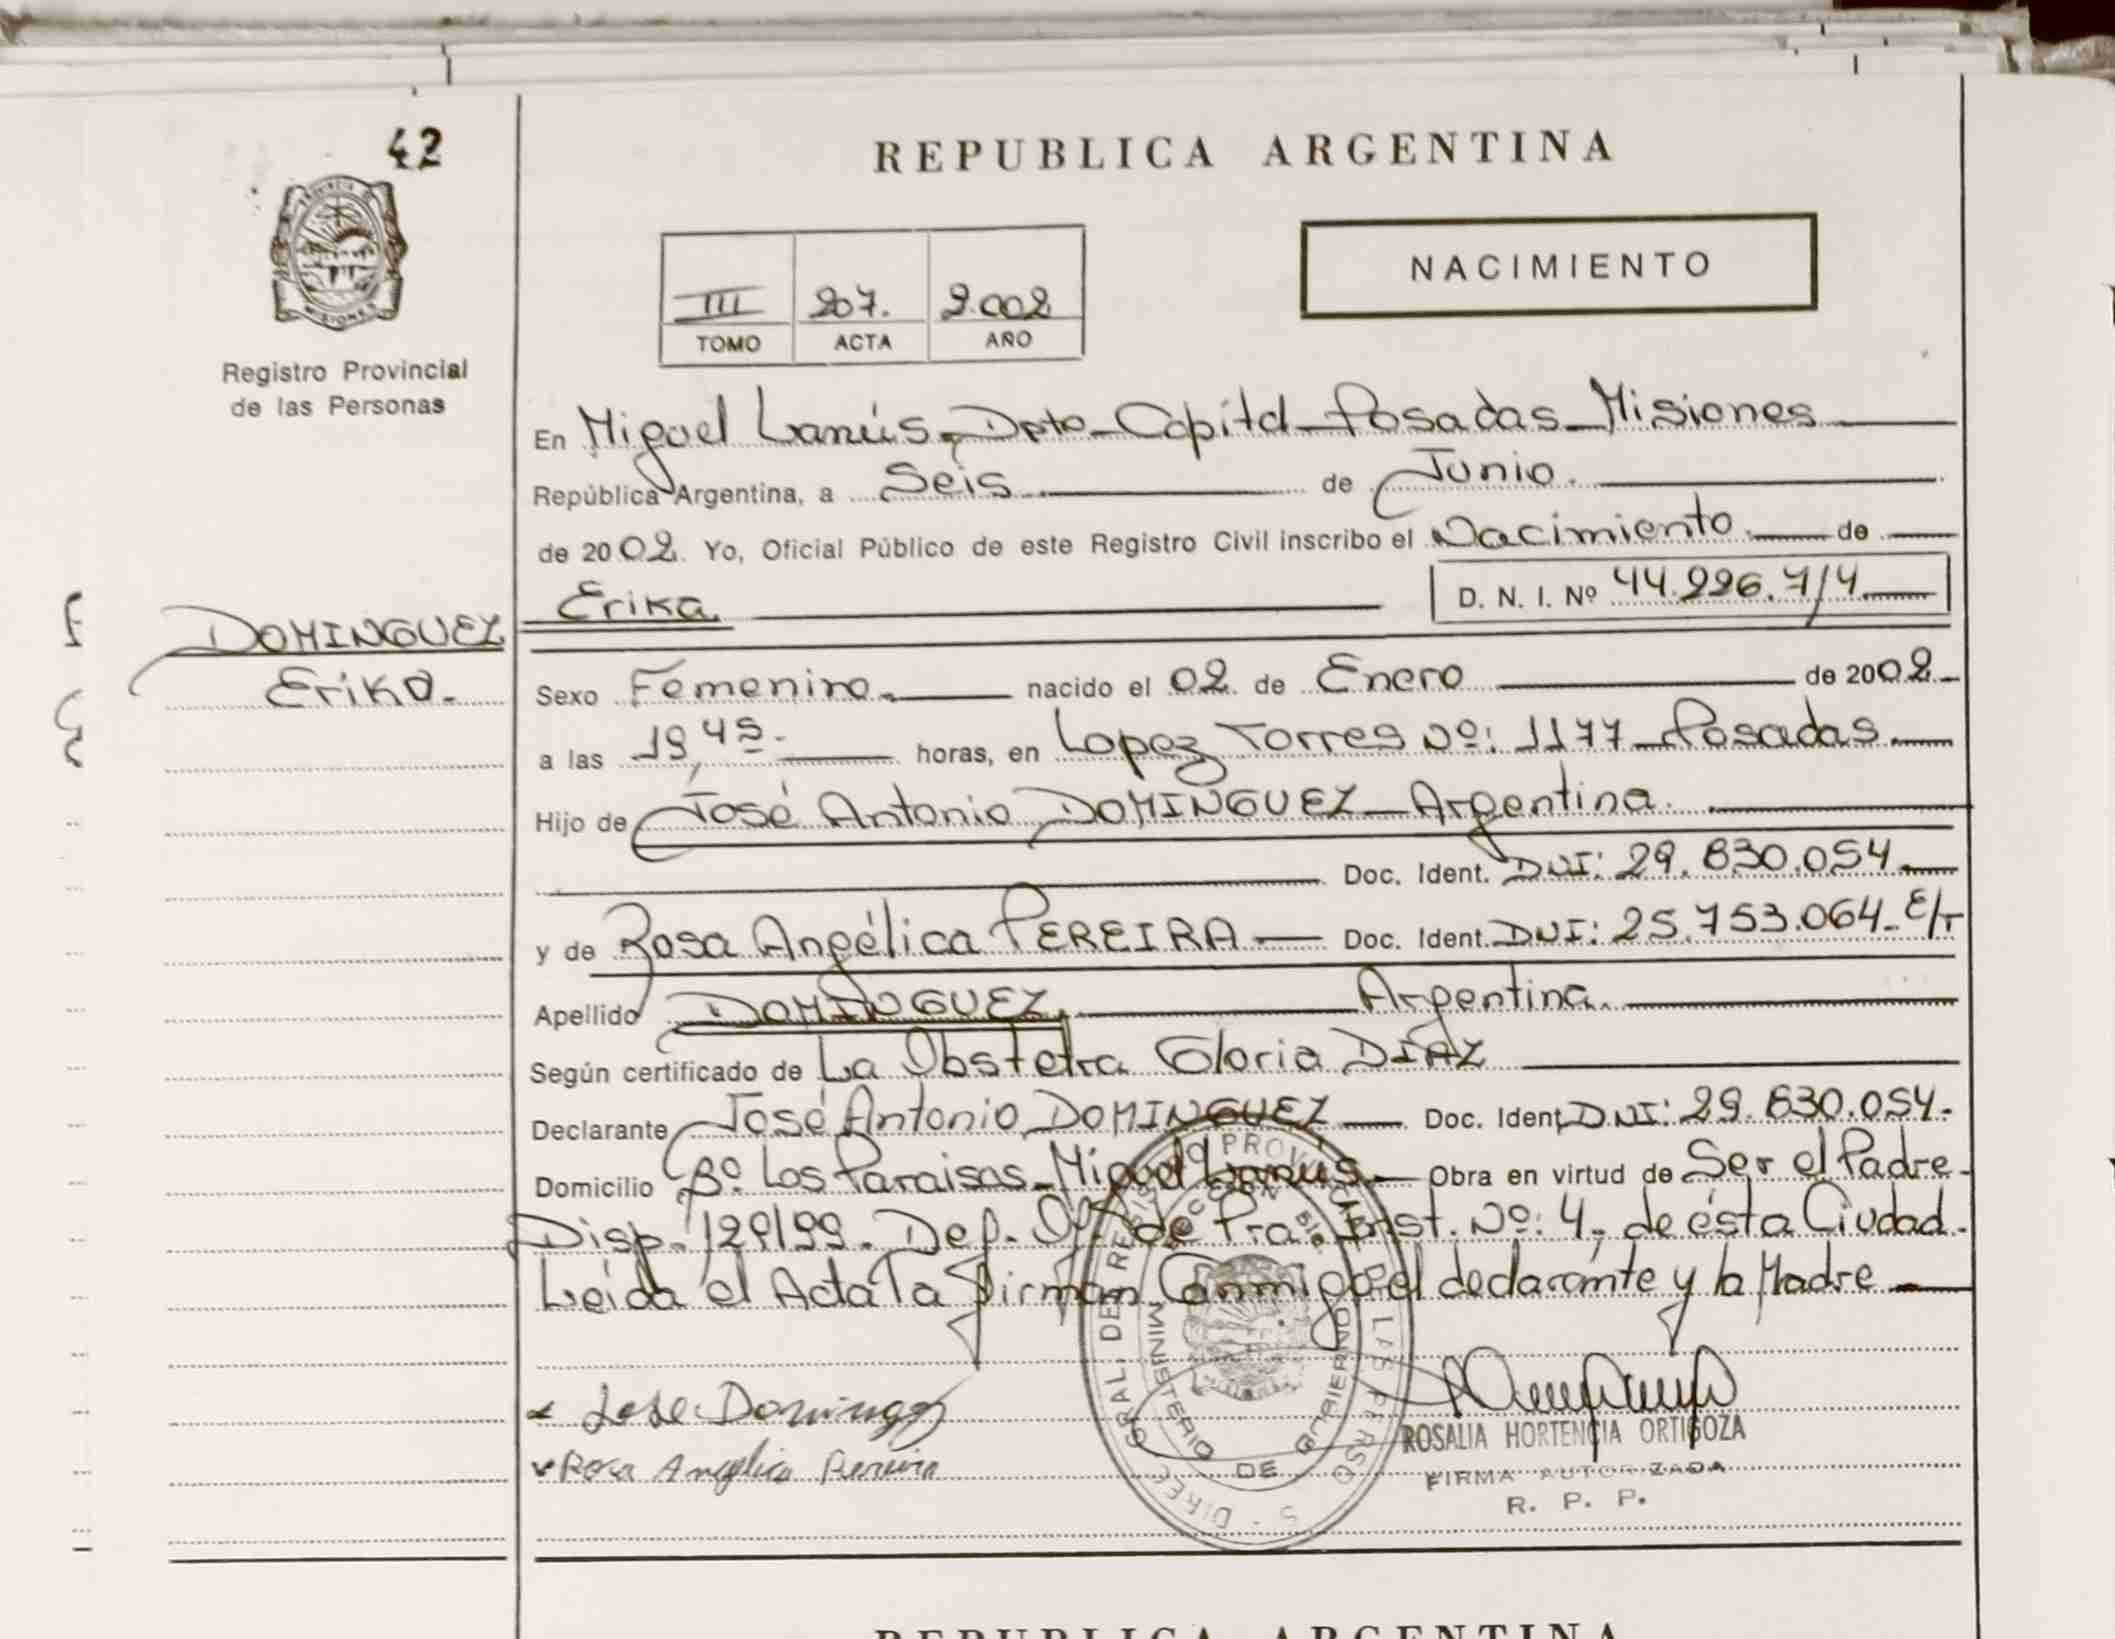 42
REPUBLICA ARGENTINA
NACIMIENTO
III 207. 2.002
TOMO ACTA AÑO
Registro Provincial
de las Personas
En Miguel Lanús - Dpto - Capital - Posadas - Misiones
República Argentina, a Seis de Junio.
de 2002. Yo, Oficial Público de este Registro Civil inscribo el Nacimiento de
Erika D. N. I. Nº 44.226.714
DOMINGUEZ
Erika.
Sexo Femenino. nacido el 02 de Enero de 2002.
a las 19,45. horas, en Lopez Torres Nº: 1177 - Posadas.
Hijo de José Antonio DOMINGUEZ - Argentina.
Doc. Ident. DNI: 29.830.054.
y de Rosa Angélica PEREIRA - Doc. Ident. DNI: 25.753.064 - E/T
Apellido DOMINGUEZ. Argentina.
Según certificado de La Obstetra Gloria DIAZ
Declarante José Antonio DOMINGUEZ - Doc. Ident. DNI: 29.830.054.
Domicilio Bº. Los Paraisos - Miguel Lanus. - Obra en virtud de Ser el Padre -
Disp. 129/99. Def. Of. de Pra. Inst. Nº: 4, de ésta Ciudad.
Leída el Acta la firman Conmigo el declarante y la Madre
Jose Dominguez
Rosa Angelica Pereira
ROSALIA HORTENCIA ORTIGOZA
FIRMA AUTORIZADA
R. P. P.
MINISTERIO DE GOBIERNO
REPUBLICA ARGENTINA